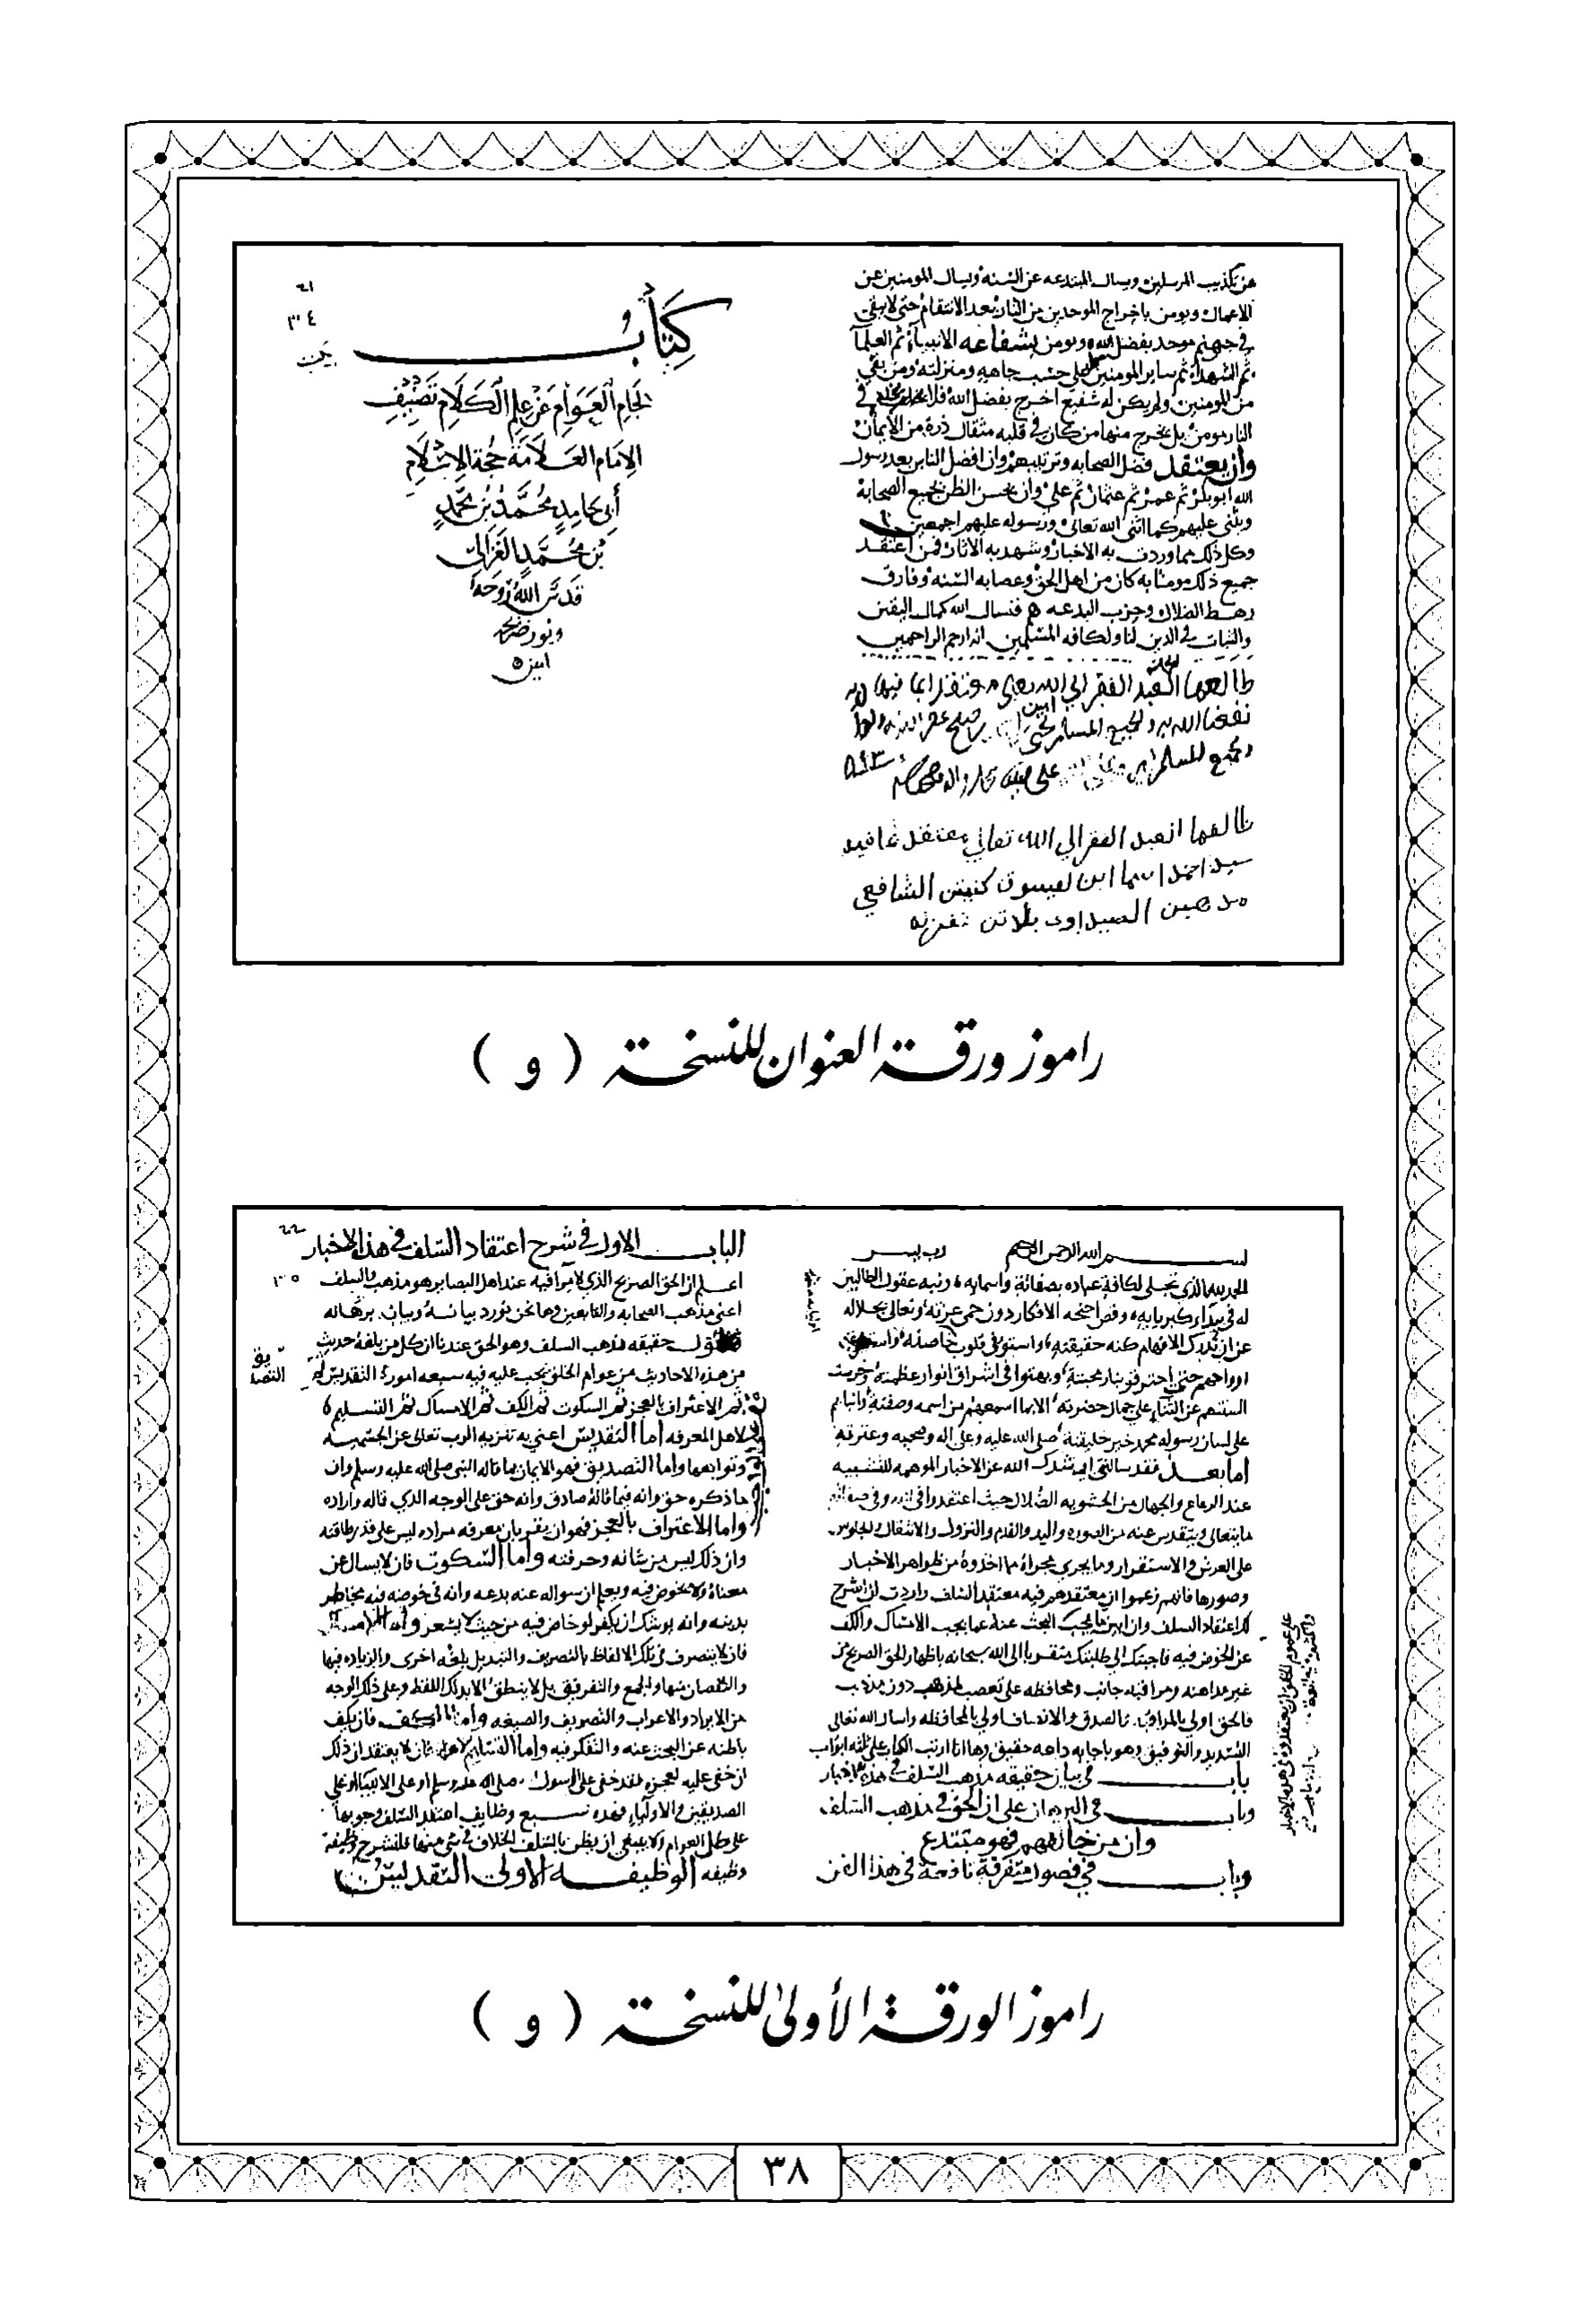 عن تكذيب المرسلين ويسال المبتدعه عن السنه ويسال المومنين عن
الاعمال ويومن باخراج الموحدين من النار بعد الانتقام حتى لا يبقى
في جهنم موحد بفضل الله ويومن بشفاعه الانبياء ثم العلما
ثم الشهداء ثم ساير المومنين على حسب جاهه ومنزلته ومن بقي
من المومنين ولم يكن له شفيع اخرج بفضل الله فلا يخلد في
النار مومن بل يخرج منها من كان في قلبه مثقال ذرة من الايمان
وان يعتقد فضل الصحابه وترتيبهم وان افضل الناس بعد رسول
الله ابو بكر ثم عمر ثم عثمان ثم علي وان يحسن الظن بجميع الصحابة
ويثني عليهم كما اثنى الله تعالى ورسوله عليهم اجمعين
وكل ذلك مما وردت به الاخبار وشهد به الاثار فمن اعتقد
جميع ذلك مومنا به كان من اهل الحق وعصابه السنه وفارق
رهط الضلال وحزب البدعه فنسال الله كمال اليقين
والثبات في الدين لنا ولكافه المسلمين انه ارحم الراحمين
طالعها العبد الفقير الى الله
نفعنا الله به ولجميع المسلمين
طالعها العبد الفقير الي الله تعالي معتقد ما فيه
كتاب
الجام العوام عن علم الكلام تصنيف
الامام العلامة حجة الاسلام
أبي حامد محمد بن محمد
بن محمد الغزالي
قدس الله روحه
ونور ضريحه
امين
راموز ورقة العنوان للنسخة ( و )
بسم الله الرحمن الرحيم رب يسر
الحمد لله الذي تجلى لكافة عباده بصفاته واسمايه وتيه عقول الطالبين
له في بيداء كبريايه وقص اجنحه الافكار دون حمى عزته وتعالى بجلاله
عن ان تدرك الافهام كنه حقيقته واستوفى قلوب خاصته
ارواحهم حتى احترقوا بنار محبته وبهتوا في اشراق انوار عظمته وخرست
السنتهم عن الثناء على جمال حضرته الا بما اسمعهم من اسمه وصفته وانباهم
على لسان رسوله محمد خير خليقته صلى الله عليه وعلى اله وصحبه وعترته
اما بعد فقد سالتني ارشدك الله عن الاخبار الموهمه للتشبيه
عند الرعاع والجهال من الحشويه الضلال حيث اعتقدوا في الله وفي صفاته
ما يتعالى ويتقدس عنه من الصوره واليد والقدم والنزول والانتقال والجلوس
على العرش والاستقرار وما يجري مجراه مما اخذوه من ظواهر الاخبار
وصورها فانهم زعموا ان معتقدهم فيه معتقد السلف واردت ان اشرح
لك اعتقاد السلف وان ابين ما يجب البحث عنه عما يجب الامساك والكف
عن الخوض فيه فاجبتك الى طلبتك متقربا الى الله سبحانه باظهار الحق الصريح من
غير مداهنه ومراقبه جانب ومحافظه على تعصب لمذهب دون مذهب
فالحق اولى بالمراقبه والصدق والانصاف اولى بالمحافظه واسال الله تعالى
التسديد والتوفيق وهو باجابه داعيه حقيق وها انا ارتب الكتاب على ثلثه ابواب
باب في بيان حقيقه مذهب السلف في هذه الاخبار
وباب في البرهان على ان الحق في مذهب السلف
وان من خالفهم فهو مبتدع
وباب في فصول متفرقة نافعة في هذا الفن
الباب الاول في شرح اعتقاد السلف في هذه الاخبار
اعلم ان الحق الصريح الذي لا مرا فيه عند اهل البصاير هو مذهب السلف
اعني مذهب الصحابه والتابعين وها نحن نورد بيانه وبيان برهانه
حقيقه مذهب السلف وهو الحق عندنا ان كل من بلغه حديث
من هذه الاحاديث من عوام الخلق يجب عليه فيه سبعه امور التقديس
ثم الاعتراف بالعجز ثم السكوت ثم الكف ثم الامساك ثم التسليم
لاهل المعرفه اما التقديس اعني به تنزيه الرب تعالى عن الجسميه
وتوابعها واما التصديق فهو الايمان بما قاله النبي صلى الله عليه وسلم وان
ما ذكره حق وانه فيما قاله صادق وانه حق على الوجه الذي قاله واراده
واما الاعتراف بالعجز فهو ان يقر بان معرفه مراده ليس على قدر طاقته
وان ذلك ليس من شانه وحرفته واما السكوت فان لا يسال عن
معناه ولا يخوض فيه ويعلم ان سواله عنه بدعه وانه في خوضه فيه مخاطر
بدينه وانه يوشك ان يكفر لو خاض فيه من حيث لا يشعر واما الامساك
فان لا يتصرف في تلك الالفاظ بالتصريف والتبديل بلغه اخرى والزياده فيها
والنقصان منها والجمع والتفريق بل لا ينطق الا بذلك اللفظ وعلى ذلك الوجه
من الايراد والاعراب والتصريف والصيغه واما الكف فان يكف
باطنه عن البحث عنه والتفكر فيه واما التسليم لاهله فان لا يعتقد ان ذلك
ان خفي عليه لعجزه فقد خفي على الرسول صلى الله عليه وسلم او على الانبيا او على
الصديقين والاوليا فهذه سبع وظايف اعتقد السلف وجوبها
على كل العوام ولا ينبغي ان يظن بالسلف الخلاف في شي منها فلنشرح وظيفة
وظيفه الوظيفه الاولى التقديس
راموز الورقة الأولى للنسخة ( و )
٣٨